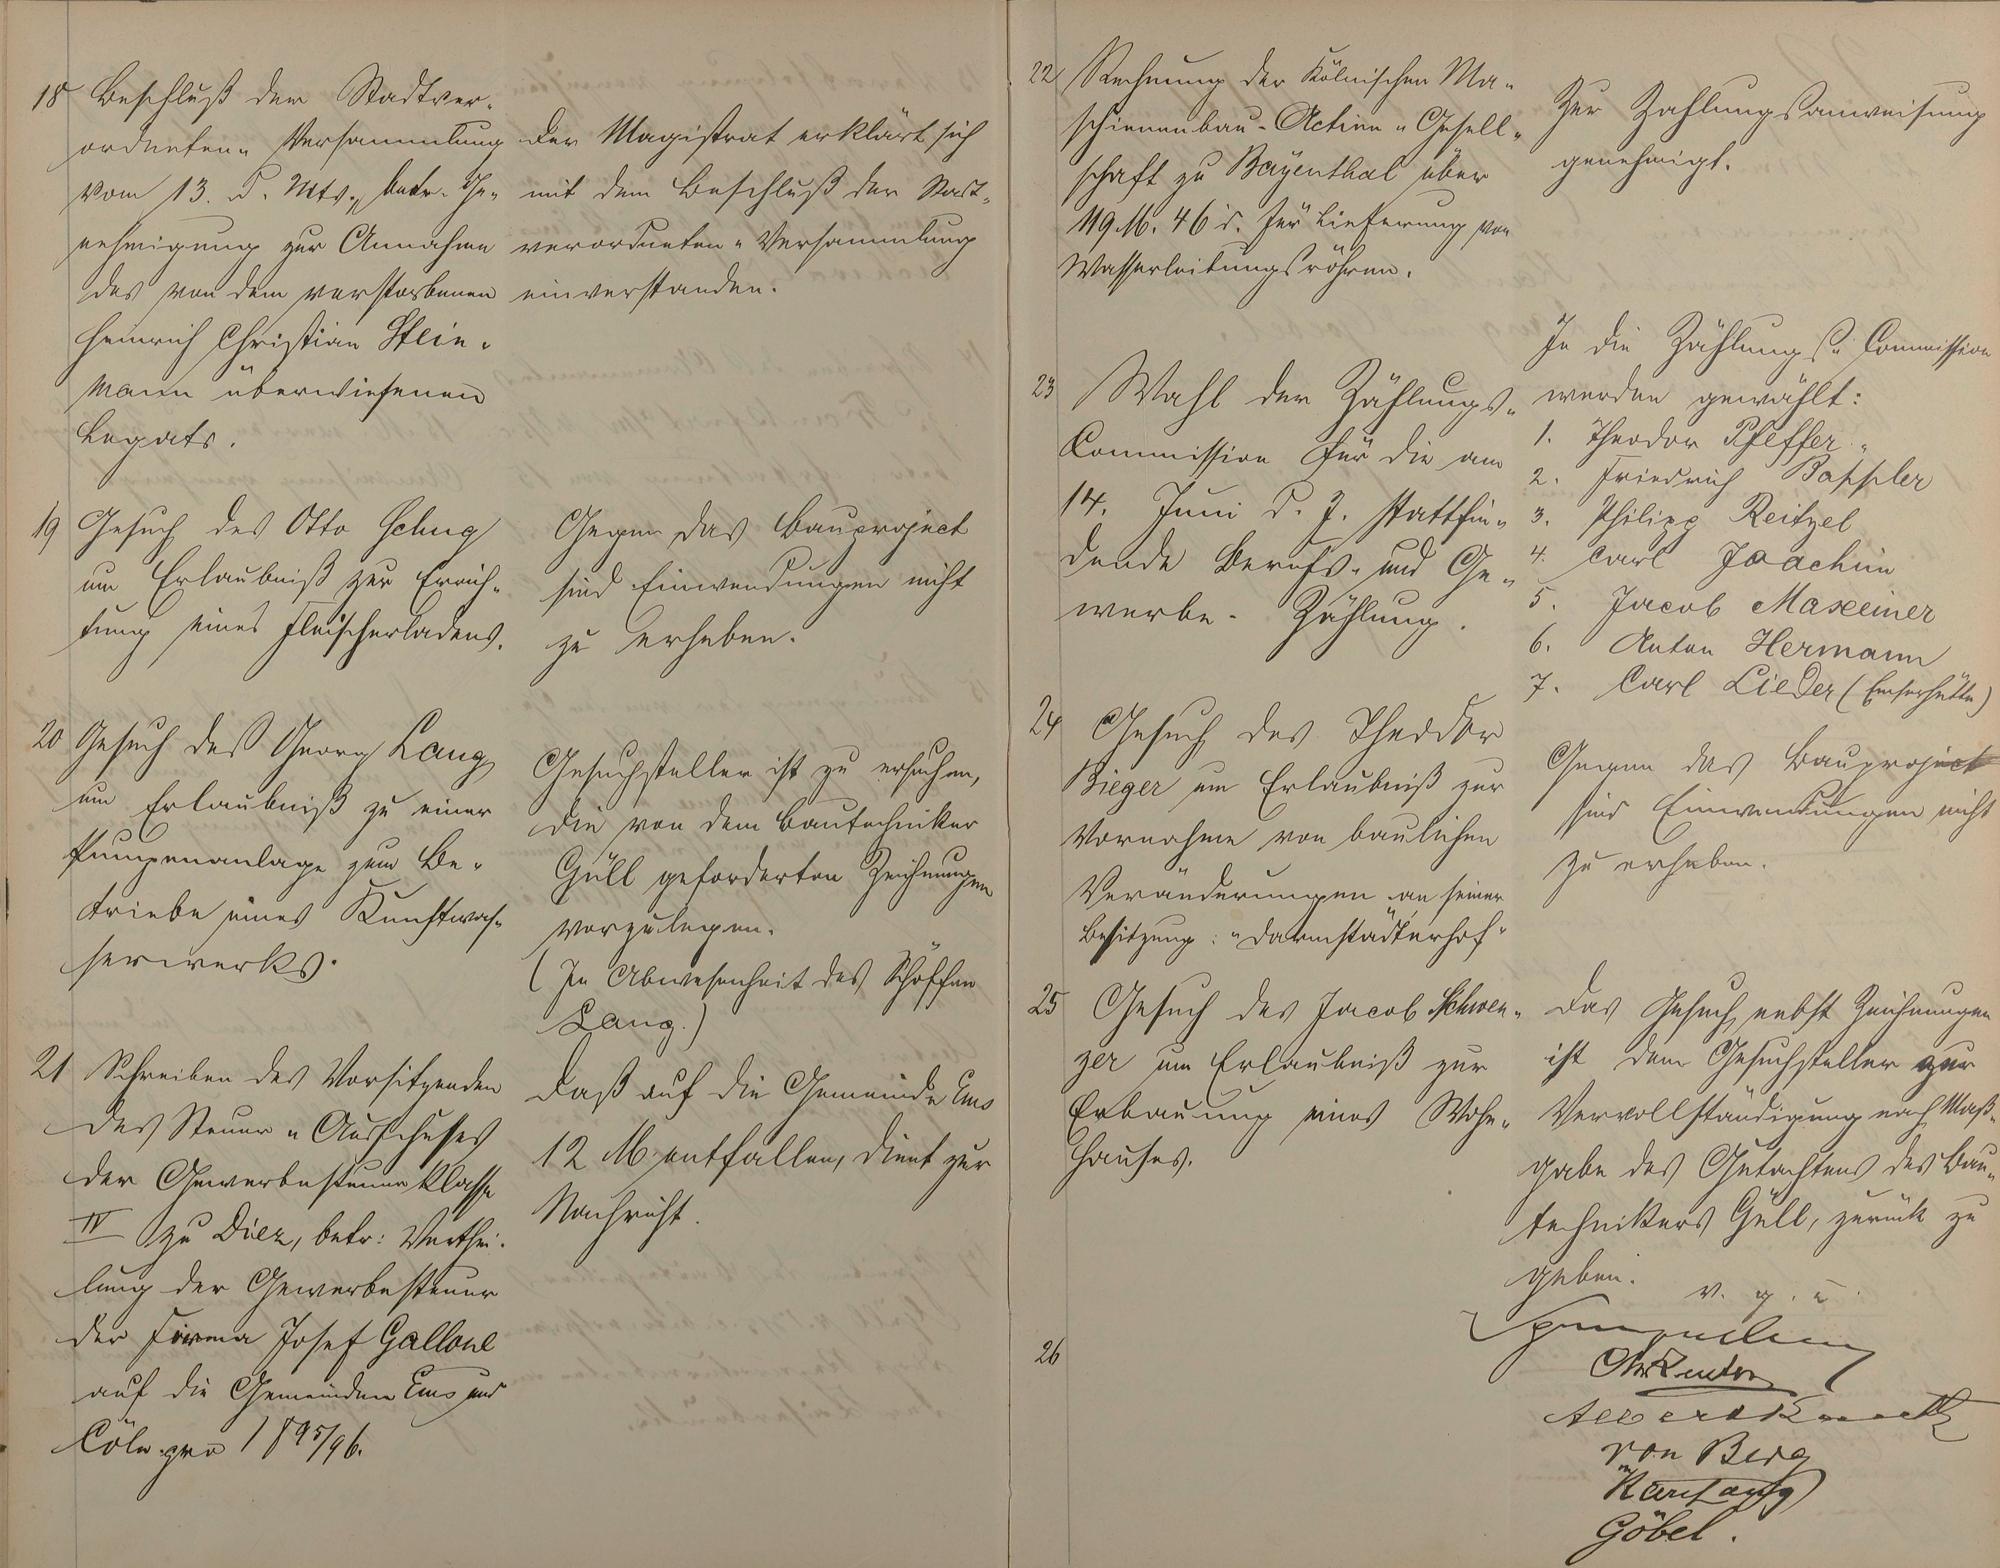 18 Beschluß der Stadtver-
ordneten-Versammlung
vom 13. d. Mts., betr. Ge-
nehmigung zur Annahme
des von dem verstorbenen
Heinrich Christian Stein-
mann überwiesenen
Legats.
Der Magistrat erklärt sich
mit dem Beschluß der Stadt-
verordneten-Versammlung
einverstanden.
19 Gesuch des Otto Schug
um Erlaubniß zur Errich-
tung eines Fleischerladens.
Gegen das Bauproject
sind Einwendungen nicht
zu erheben.
20 Gesuch des Georg Lang
um Erlaubniß zu einer
Pumpenanlage zum Be-
triebe eines Kunstwas-
serwerks.
Gesuchsteller ist zu ersuchen,
die von dem Bautechniker
Güll geforderten Zeichnungen
vorzulegen.
(In Abwesenheit des Schöffen
Lang.)
21 Schreiben des Vorsitzenden
des Steuer-Ausschusses
der Gewerbesteuerklasse
IV zu Diez, betr: Verthei-
lung der Gewerbesteuer
der Firma Josef Gallone
auf die Gemeinden Ems und
Cöln pro 1895/96.
Daß auf die Gemeinde Ems
12 M entfallen, dient zur
Nachricht.
22 Rechnung der Kölnischen Ma-
schienenbau-Actien-Gesell-
schaft zu Bayenthal über
119 M. 46 d. für Lieferung von
Wasserleitungsröhren.
Zur Zahlungsanweisung
genehmigt.
23 Wahl der Zählungs-
Commission für die am
14. Juni d. J. stattfin-
dende Berufs- und Ge-
werbe-Zählung.
In die Zählungs-Commission
werden gewählt:
1. Theodor Pfeffer
2. Friedrich Bappler
3. Philipp Reitzel
4. Carl Joachim
5. Jacob Maxeiner
6. Anton Hermann
7. Carl Lieder (Emserhütte)
24 Gesuch des Theodor
Bieger um Erlaubniß zur
Vornahme von baulichen
Veränderungen an seiner
Besitzung: "Darmstädterhof"
Gegen das Bauproject
sind Einwendungen nicht
zu erheben.
25 Gesuch des Jacob Schwen-
zer um Erlaubniß zur
Erbauung eines Wohn-
hauses.
Das Gesuch nebst Zeichnungen
ist dem Gesuchsteller zur
Vervollständigung nach Maß-
gabe des Gutachtens des Bau-
technikers Güll, zurück zu
geben.
v. g. u.
26
von Berg
Göbel.